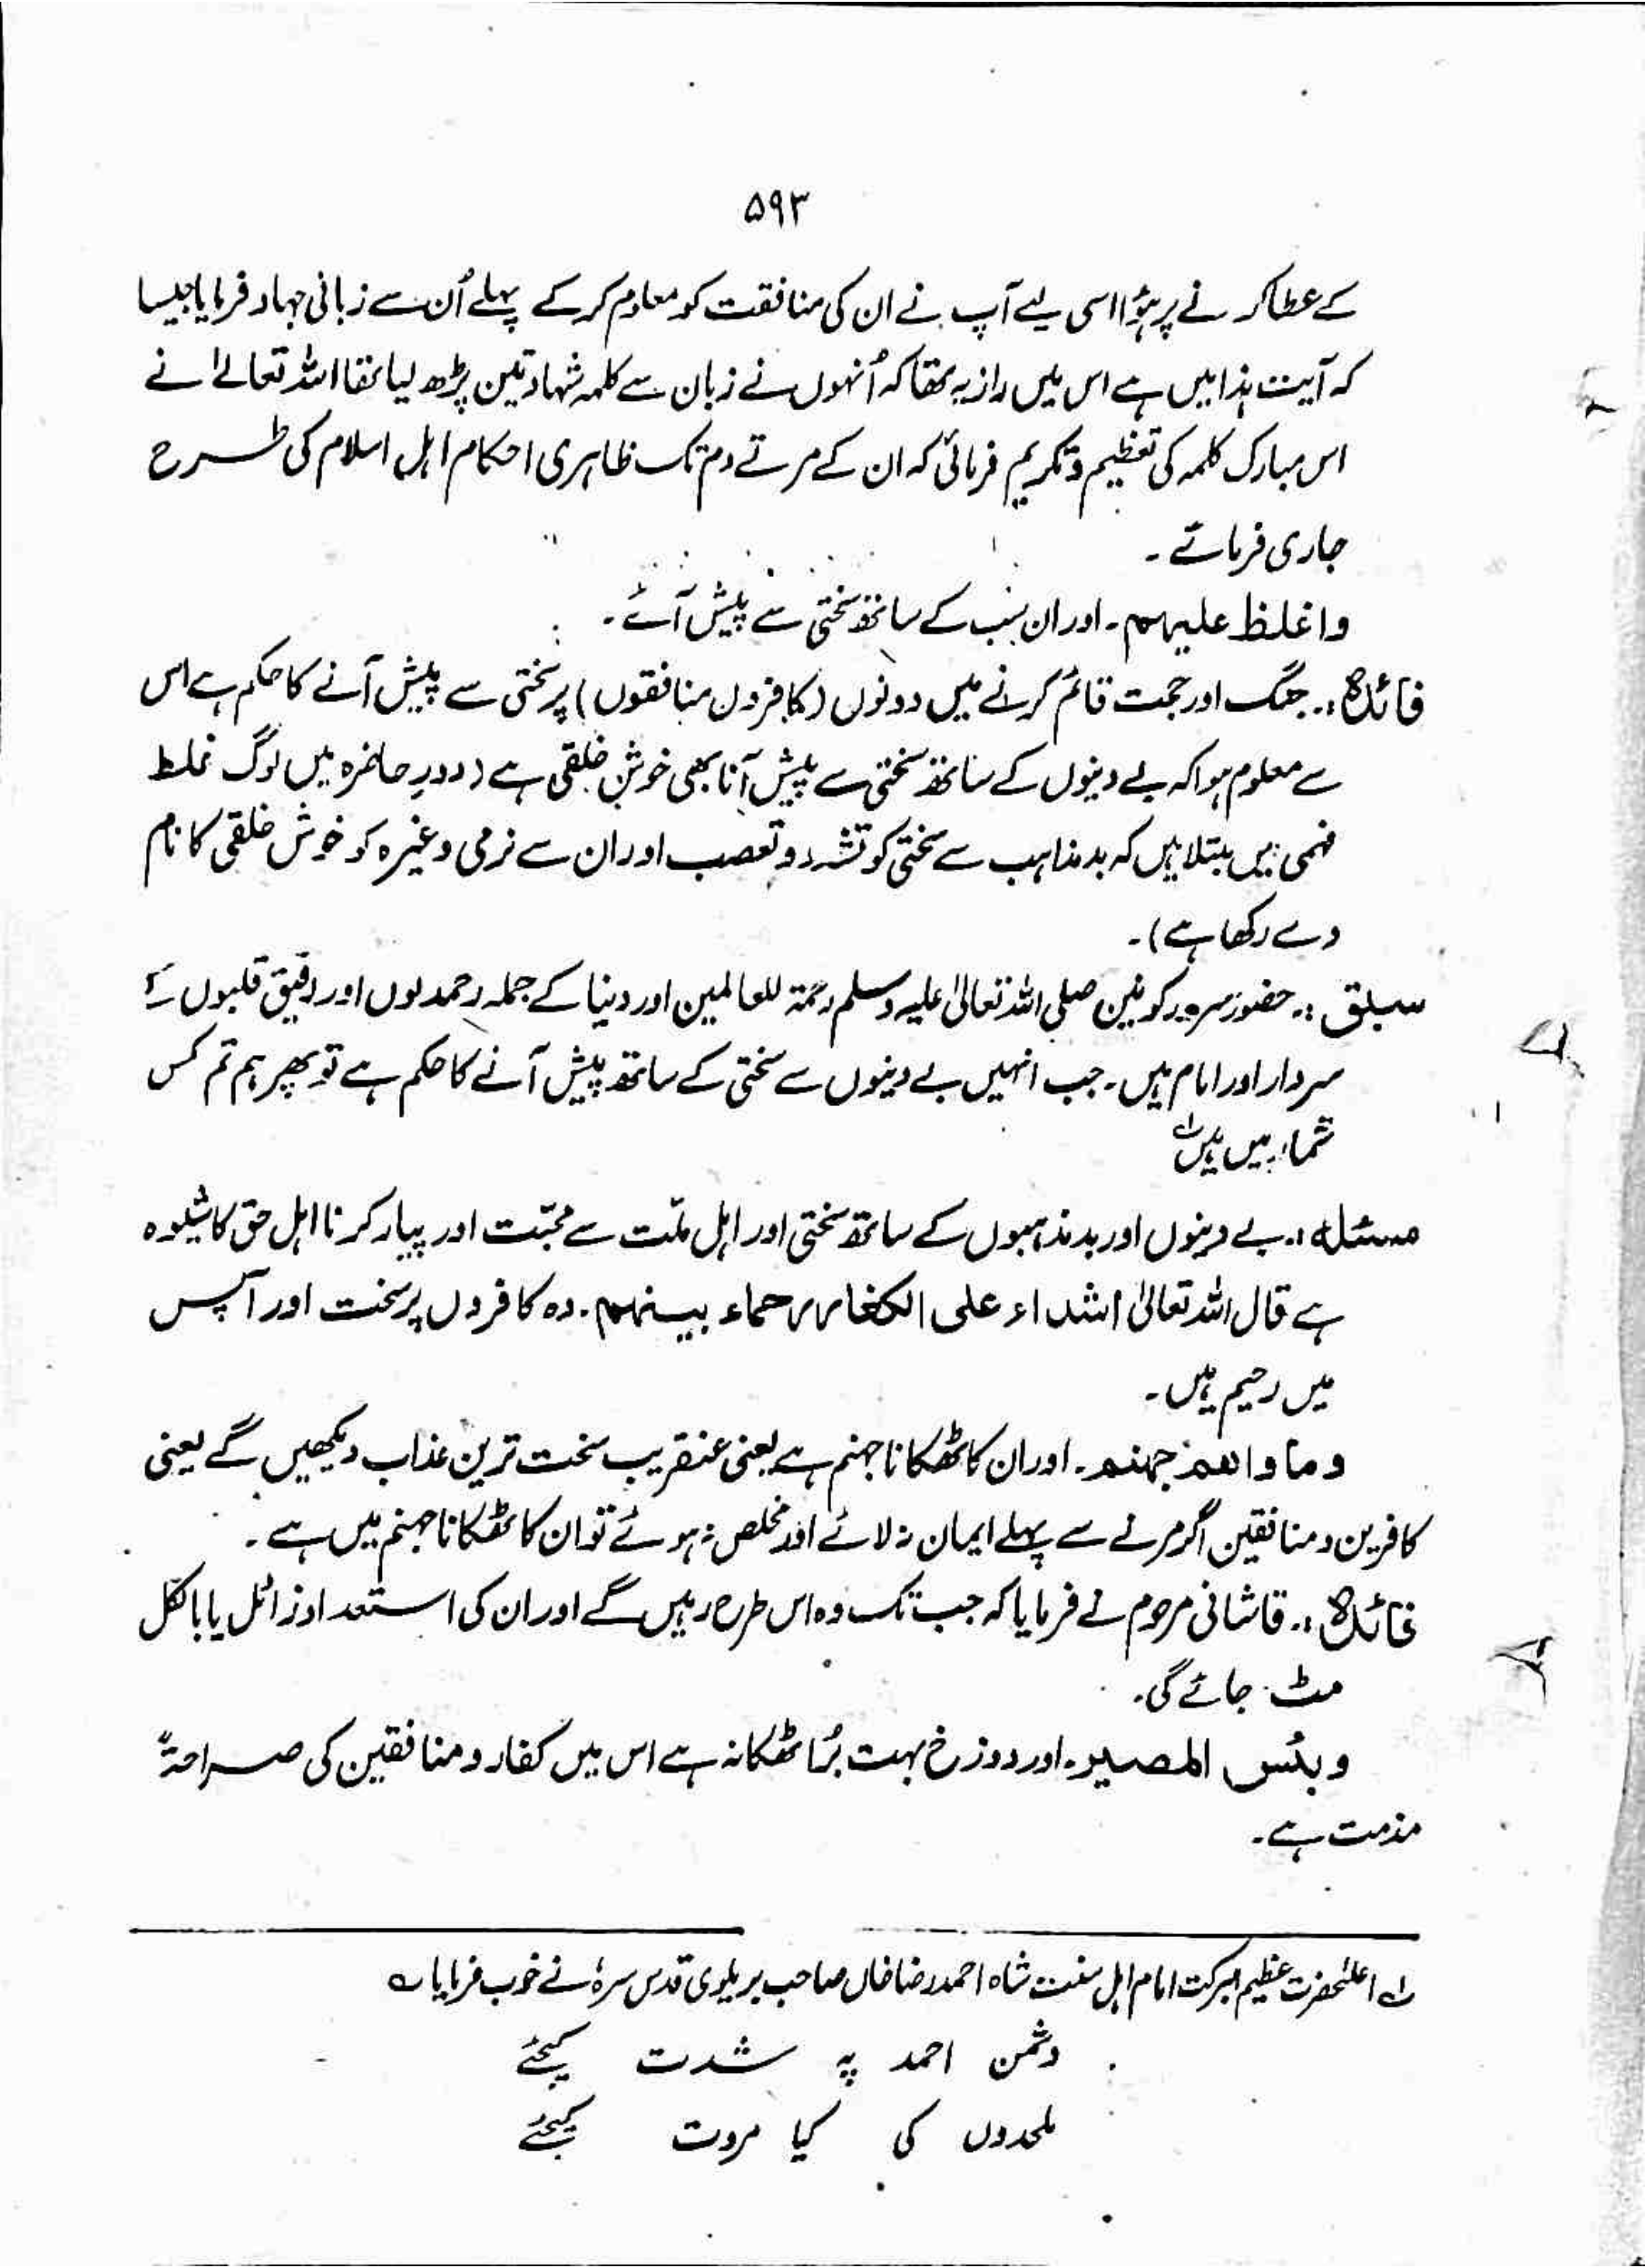 ۵۹۳
کے عطا کرنے پر ہؤا اسی لیے آپ نے ان کی منافقت کو معلوم کر کے پہلے اُن سے زبانی جہاد فرمایا جیسا
کہ آیت ہذا میں ہے اس میں راز یہ تھا کہ اُنہوں نے زبان سے کلمہ شہادتین پڑھ لیا تھا اللہ تعالےٰ نے
اس مبارک کلمہ کی تعظیم و تکریم فرمائی کہ ان کے مرتے دم تک ظاہری احکام اہل اسلام کی طرح
جاری فرمائے ۔
واغلظ علیہم ۔ اور ان سب کے ساتھ سختی سے پیش آئے ۔
فائدہ :۔ جنگ اور حجت قائم کرنے میں دونوں (کافروں منافقوں) پر سختی سے پیش آنے کا حکم ہے اس
سے معلوم ہوا کہ بے دینوں کے ساتھ سختی سے پیش آنا بھی خوش خلقی ہے (دورِ حاضرہ میں لوگ غلط
فہمی میں مبتلا ہیں کہ بد مذاہب سے سختی کو تشدد و تعصب اور ان سے نرمی وغیرہ کو خوش خلقی کا نام
دے رکھا ہے)۔
سبق :۔ حضور سرور کونین صلی اللہ تعالیٰ علیہ وسلم رحمۃ للعالمین اور دنیا کے جملہ رحمدلوں اور رقیق قلبوں کے
سردار اور امام ہیں ۔ جب انہیں بے دینوں سے سختی کے ساتھ پیش آنے کا حکم ہے تو پھر ہم تم کس
شمار میں ہیں لہ
مسئلہ :۔ بے دینوں اور بد مذہبوں کے ساتھ سختی اور اہل ملّت سے محبّت اور پیار کرنا اہل حق کا شیوہ
ہے قال اللہ تعالیٰ اشداء علی الکفار رحماء بینہم ۔ وہ کافروں پر سخت اور آپس
میں رحیم ہیں ۔
وماواھم جھنم ۔ اور ان کا ٹھکانا جہنم ہے یعنی عنقریب سخت ترین عذاب دیکھیں گے یعنی
کافرین و منافقین اگر مرنے سے پہلے ایمان نہ لائے اور مخلص نہ ہوئے تو ان کا ٹھکانا جہنم میں ہے ۔
فائدہ :۔ قاشانی مرحوم نے فرمایا کہ جب تک وہ اس طرح رہیں گے اور ان کی استعداد زائل یا بالکل
مٹ جائے گی ۔
وبئس المصیر ۔ اور دوزخ بہت بُرا ٹھکانہ ہے اس میں کفار و منافقین کی صراحۃً
مذمت ہے ۔
لہ اعلحضرت عظیم البرکت امام اہل سنت شاہ احمد رضا خاں صاحب بریلوی قدس سرہٗ نے خوب فرمایا ؎
دشمن احمد پہ شدت کیجئے
ملحدوں کی کیا مروت کیجئے